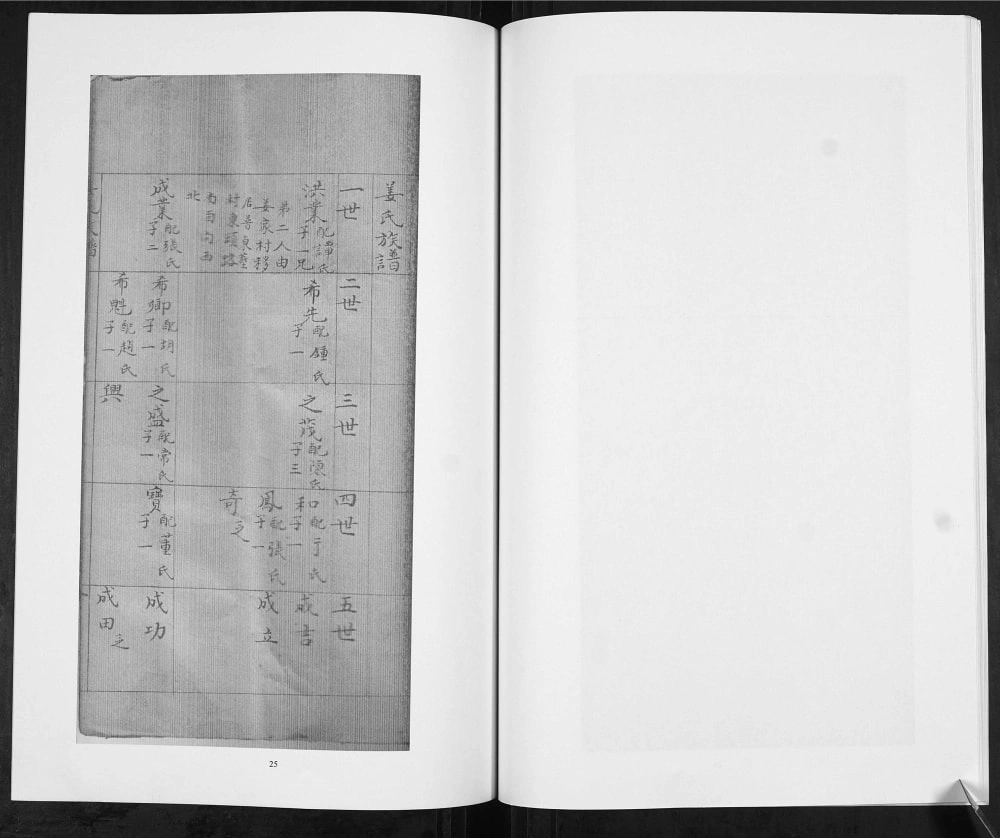 姜氏族譜
一世
洪業配譚氏
子一兄
弟二人由
姜家村移
居
村東頭路
南百向西
北
成業配張氏
子二
二世
希先配鍾氏
子一
希卿配胡氏
子一
希魁配趙氏
子一
三世
之茂配陳氏
子三
之盛配常氏
子一
興
四世
和配于氏
子一
鳳配張氏
子一
奇乏
寶配董氏
子一
五世
成吉
成立
成功
成田乏
25